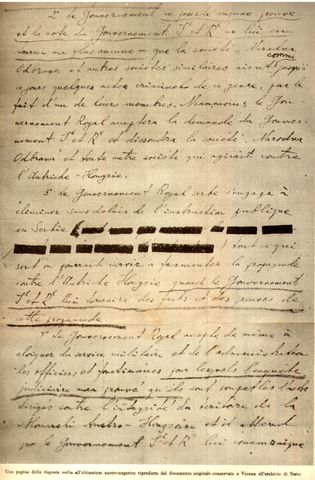 2° le Gouvernement ne possède aucune preuve
et la note du Gouvernement I et R ne lui en
fournit non plus aucune — que la société „Narodna
commis
Odbrana" et autres sociétés similaires aient jusqu'à
ce jour quelques actes criminels de ce genre, par le
fait d'un de leurs membres. Néanmoins le Gou-
vernement Royal acceptera la demande du Gouver-
nement I et R et dissoudra la société „Narodna
Odbrana" et toute autre société qui agirait contre
l'Autriche-Hongrie.
3° Le Gouvernement Royal serbe s'engage à
éliminer sans délais de l'instruction publique
en Serbie
tout ce qui
sert ou pourrait servir à fomenter la propagande
contre l'Autriche-Hongrie quand le Gouvernement
I et R lui fournira des faits et des preuves de
cette propagande
4° Le Gouvernement Royal accepte de même à
éloigner du service militaire et de l'administration
les officiers et fonctionnaires pour lesquels l'enquête
judiciaire aura prouvé qu'ils sont coupables d'actes
dirigés contre l'intégrité du territoire de la
Monarchie Austro-Hongroise et il attend
que le Gouvernement I et R lui communique
Una pagina della risposta serba all'ultimatum austro-ungarico riprodotta dal documento originale conservato a Vienna all'archivio di Stato.